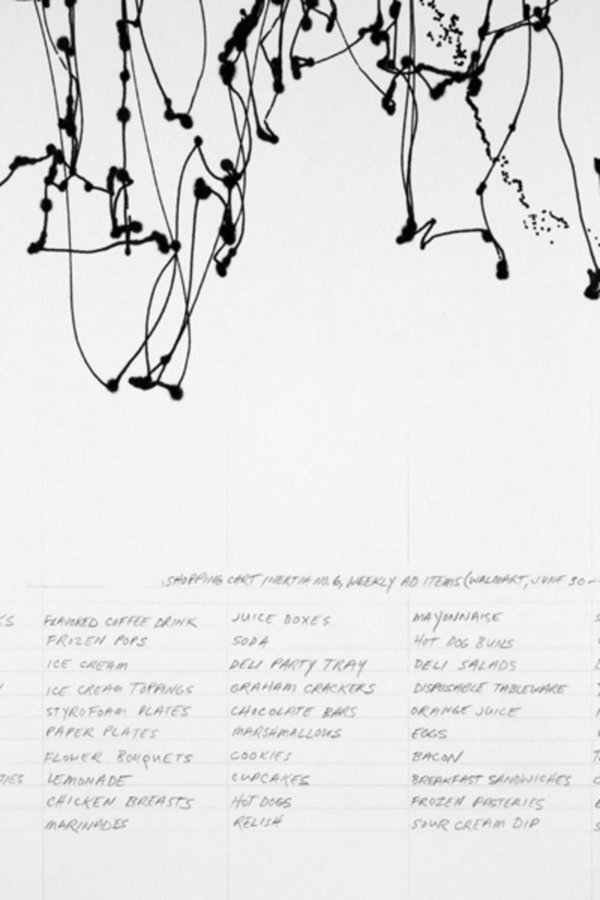 SHOPPING CART INERTIA NO. 6, WEEKLY AD ITEMS (WALMART, JUNE 30 –
KS FLAVORED COFFEE DRINK JUICE BOXES MAYONNAISE
FROZEN POPS SODA HOT DOG BUNS
ICE CREAM DELI PARTY TRAY DELI SALADS
ICE CREAM TOPPINGS GRAHAM CRACKERS DISPOSABLE TABLEWARE
STYROFOAM PLATES CHOCOLATE BARS ORANGE JUICE
PAPER PLATES MARSHMALLOWS EGGS
FLOWER BOUQUETS COOKIES BACON
TIES LEMONADE CUPCAKES BREAKFAST SANDWICHES
CHICKEN BREASTS HOT DOGS FROZEN PASTERIES
MARINADES RELISH SOUR CREAM DIP